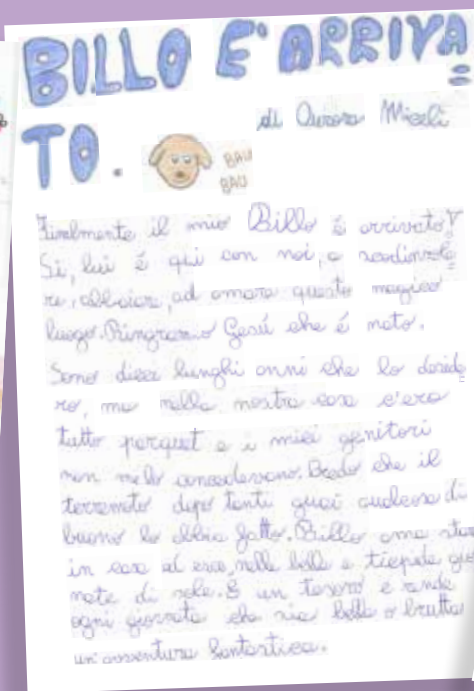 BILLO E' ARRIVA=
TO.
di Aurora Miceli
BAU
BAU
Finalmente il mio Billo è arrivato!
Si, lui è qui con noi, a scodinzola=
re, abbaiare, ad amare questo magico
luogo. Ringrazio Gesù che è nato.
Sono dieci lunghi anni che lo deside=
ro, ma nella nostra casa c'era
tutto parquet e i miei genitori
non me lo concedevano. Credo che il
terremoto dopo tanti guai qualcosa di
buono lo abbia fatto. Billo ama stare
in casa ed esce, nelle belle e tiepide gior
nate di sole. È un tesoro e rende
ogni giornata che sia bella o brutta
un'avventura fantastica.